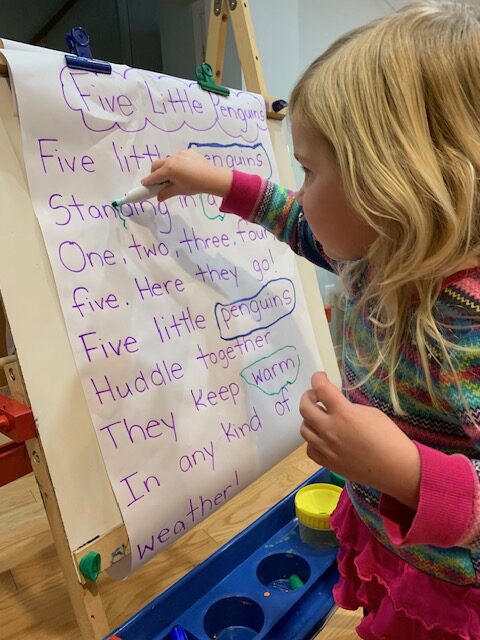 Five Little Penguins
Five little penguins
Standing in a
One, two, three, four,
five. Here they go!
Five little penguins
Huddle together
They keep warm
In any kind of
weather!